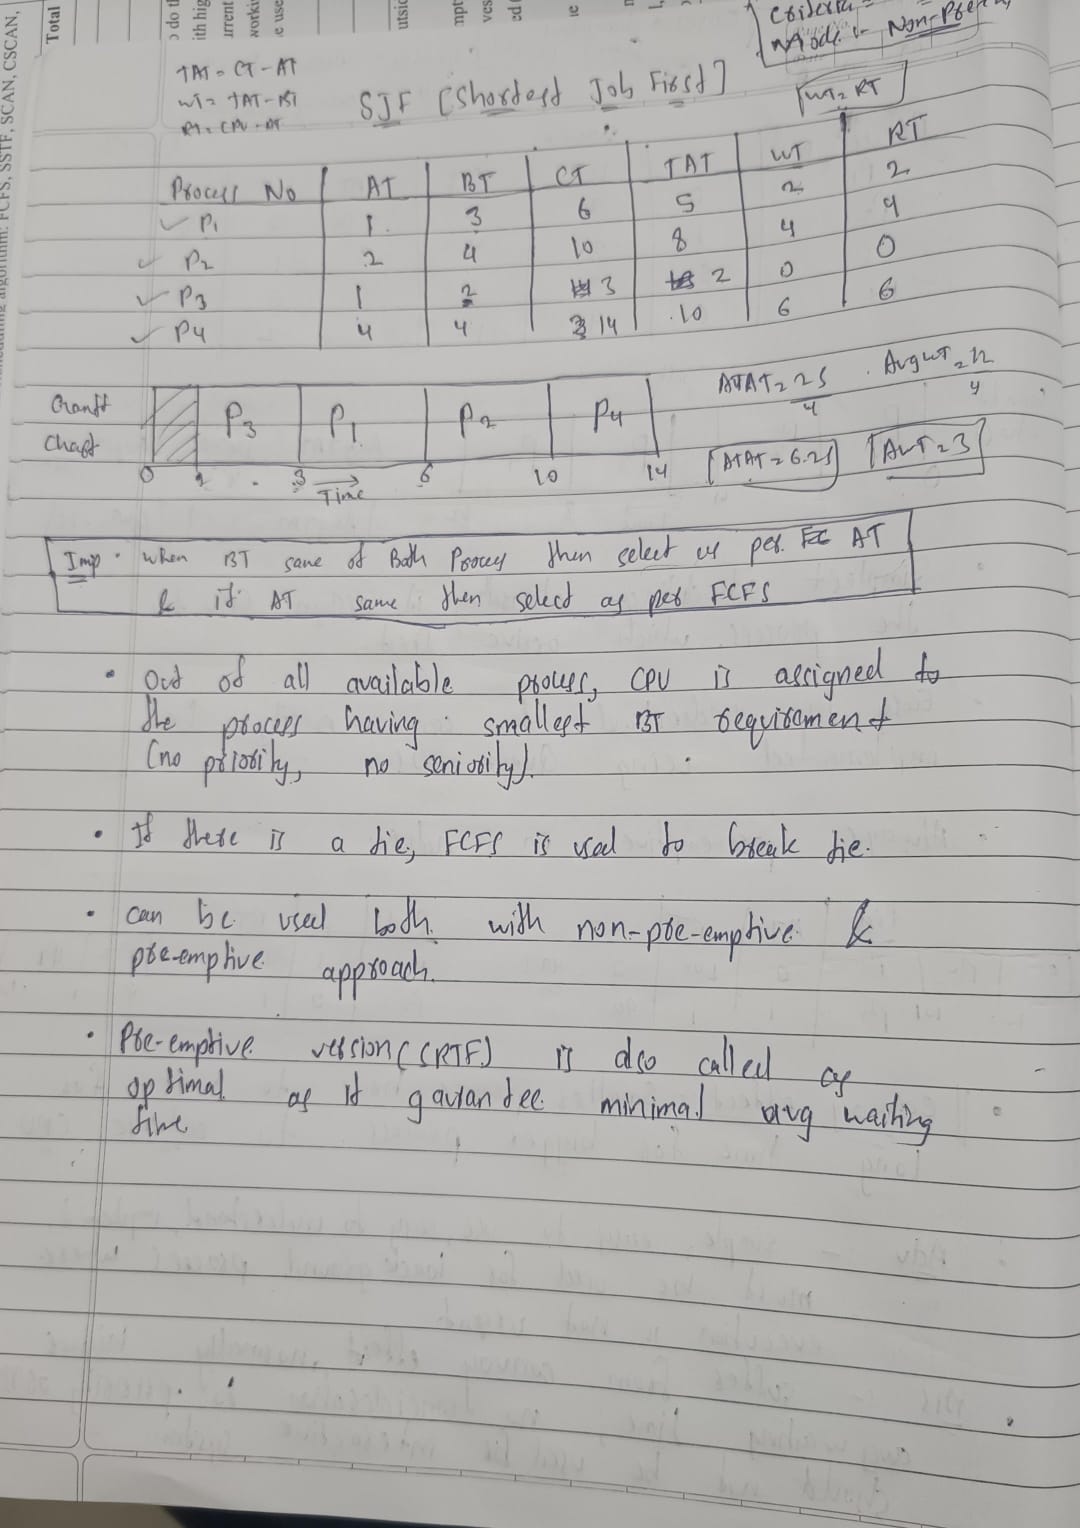 Total
SCAN, CSCAN,
Mode :- Non-Pree
TAT = CT - AT
WT = TAT - BT
SJF [Shortest Job First]
WT = RT
Process No AT BT CT TAT WT RT
P1 1 3 6 5 2 2
P2 2 4 10 8 4 4
P3 1 2 3 2 0 0
P4 4 4 14 10 6 6
Grantt Chart
P3 P1 P2 P4
0 1 3 6 10 14
Time
ATAT = 25/4
Avg WT = 12/4
ATAT = 6.25
AWT = 3
Imp • when BT same of Both Process then select as per AT
& if AT same then select as per FCFS
• Out of all available process, CPU is assigned to
the process having smallest BT requirement
(no priority, no seniority).
• If there is a tie, FCFS is used to break tie.
• can be used both with non-pre-emptive &
pre-emptive approach.
• Pre-emptive version (SRTF) is also called as
optimal as it gaurantee minimal avg waiting
time